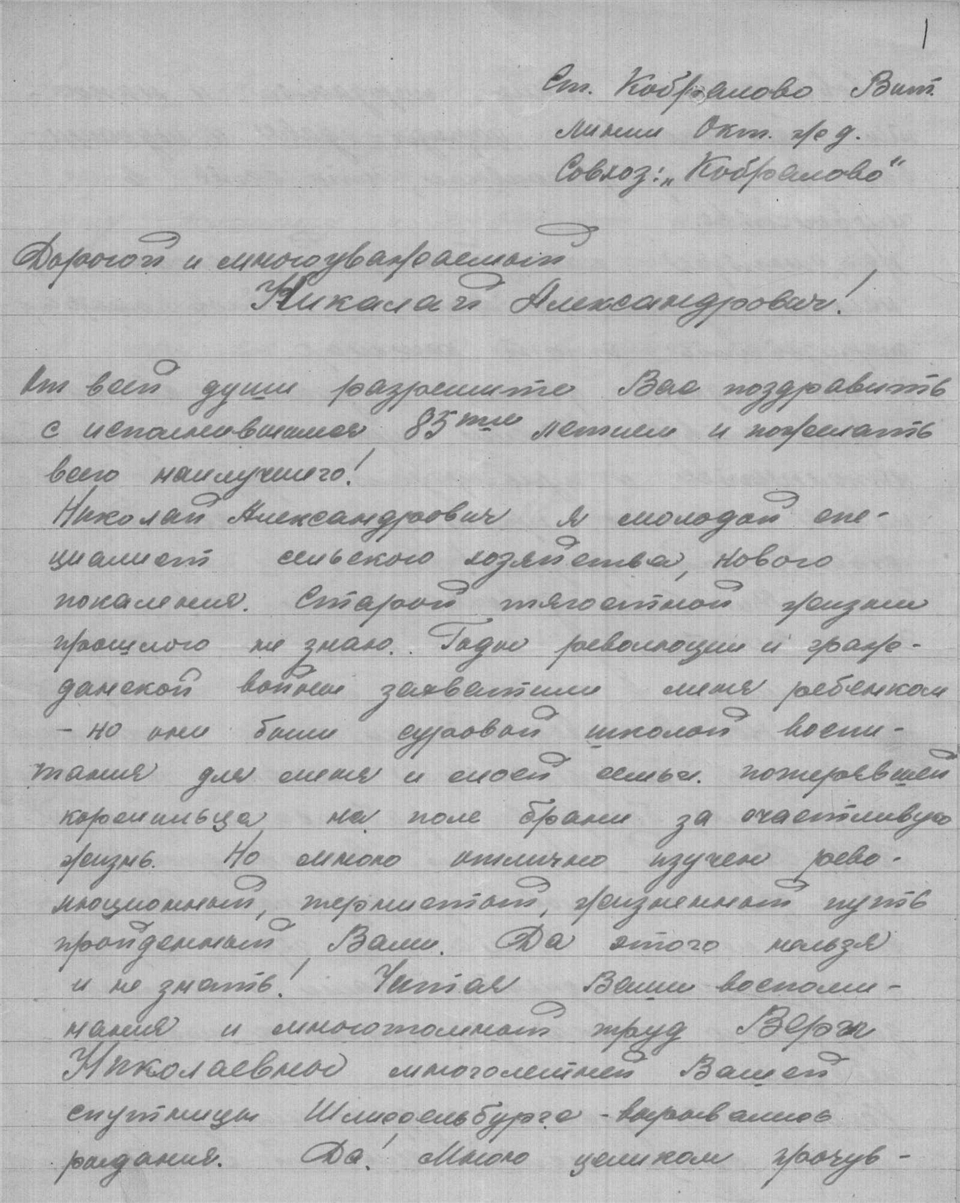 1
Ст. Кобралово Вит.
линии Окт. жд.
Совхоз: „Кобралово"
Дорогой и многоуважаемый
Николай Александрович!
От всей души разрешите Вас поздравить
с исполнившимся 85тие летием и пожелать
всего наилучшего!
Николай Александрович я молодой спе-
циалист сельского хозяйства, нового
покаления. Старой тягостной жизни
прошлого не знаю. Годы революции и граж-
данской войны захватили меня ребенком
- но они были суровой школой воспи-
тания для меня и моей семьи. потерявшей
кормильца на поле брани за счастливую
жизнь. Но мною отлично изучен рево-
люционный, тернистый, жизненный путь
пройденный Вами. Да этого нельзя
и не знать! Читая Ваши воспоми-
нания и многотомный труд Веры
Николаевны многолетней Вашей
спутницы Шлиссельбурга - вырывались
рыдания. Да! Мною целиком прочув-